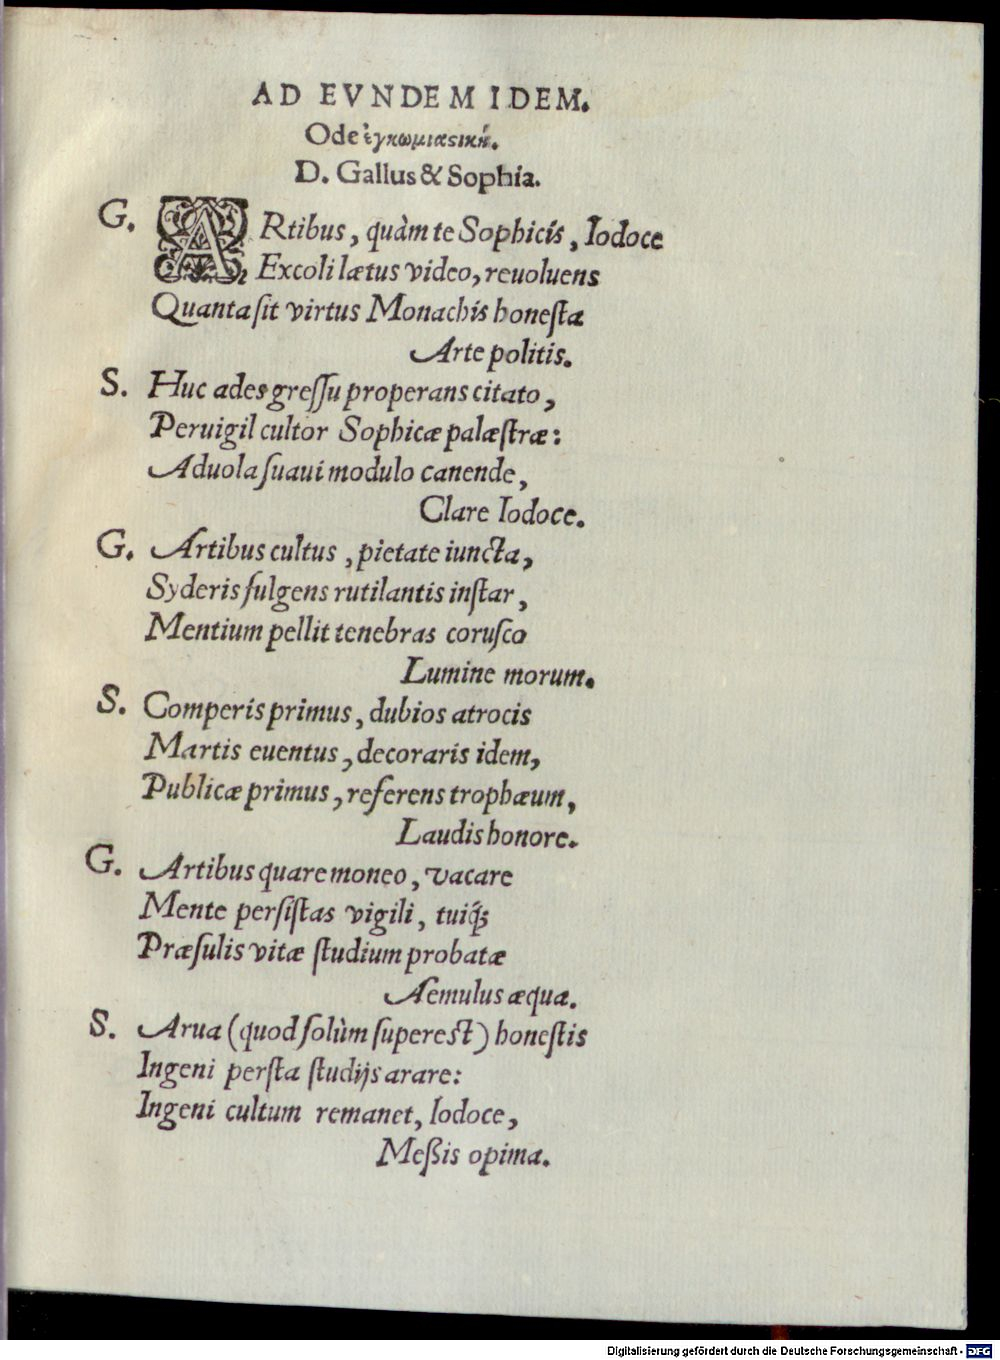 AD EVNDEM IDEM.
Ode ἐγκωμιαςική.
D. Gallus & Sophia.
G. ARtibus, quàm te Sophicis, Iodoce
Excoli lætus video, reuoluens
Quanta ſit virtus Monachis honeſta
Arte politis.
S. Huc ades greſſu properans citato,
Peruigil cultor Sophicæ palæſtræ:
Aduola ſuaui modulo canende,
Clare Iodoce.
G. Artibus cultus, pietate iuncta,
Syderis fulgens rutilantis inſtar,
Mentium pellit tenebras coruſco
Lumine morum.
S. Comperis primus, dubios atrocis
Martis euentus, decoraris idem,
Publicæ primus, referens trophæum,
Laudis honore.
G. Artibus quare moneo, vacare
Mente perſiſtas vigili, tuiq́;
Præſulis vitæ ſtudium probatæ
Aemulus æqua.
S. Arua (quod ſolùm ſupereſt) honeſtis
Ingeni perſta ſtudijs arare:
Ingeni cultum remanet, Iodoce,
Meßis opima.
Digitalisierung gefördert durch die Deutsche Forschungsgemeinschaft - DFG